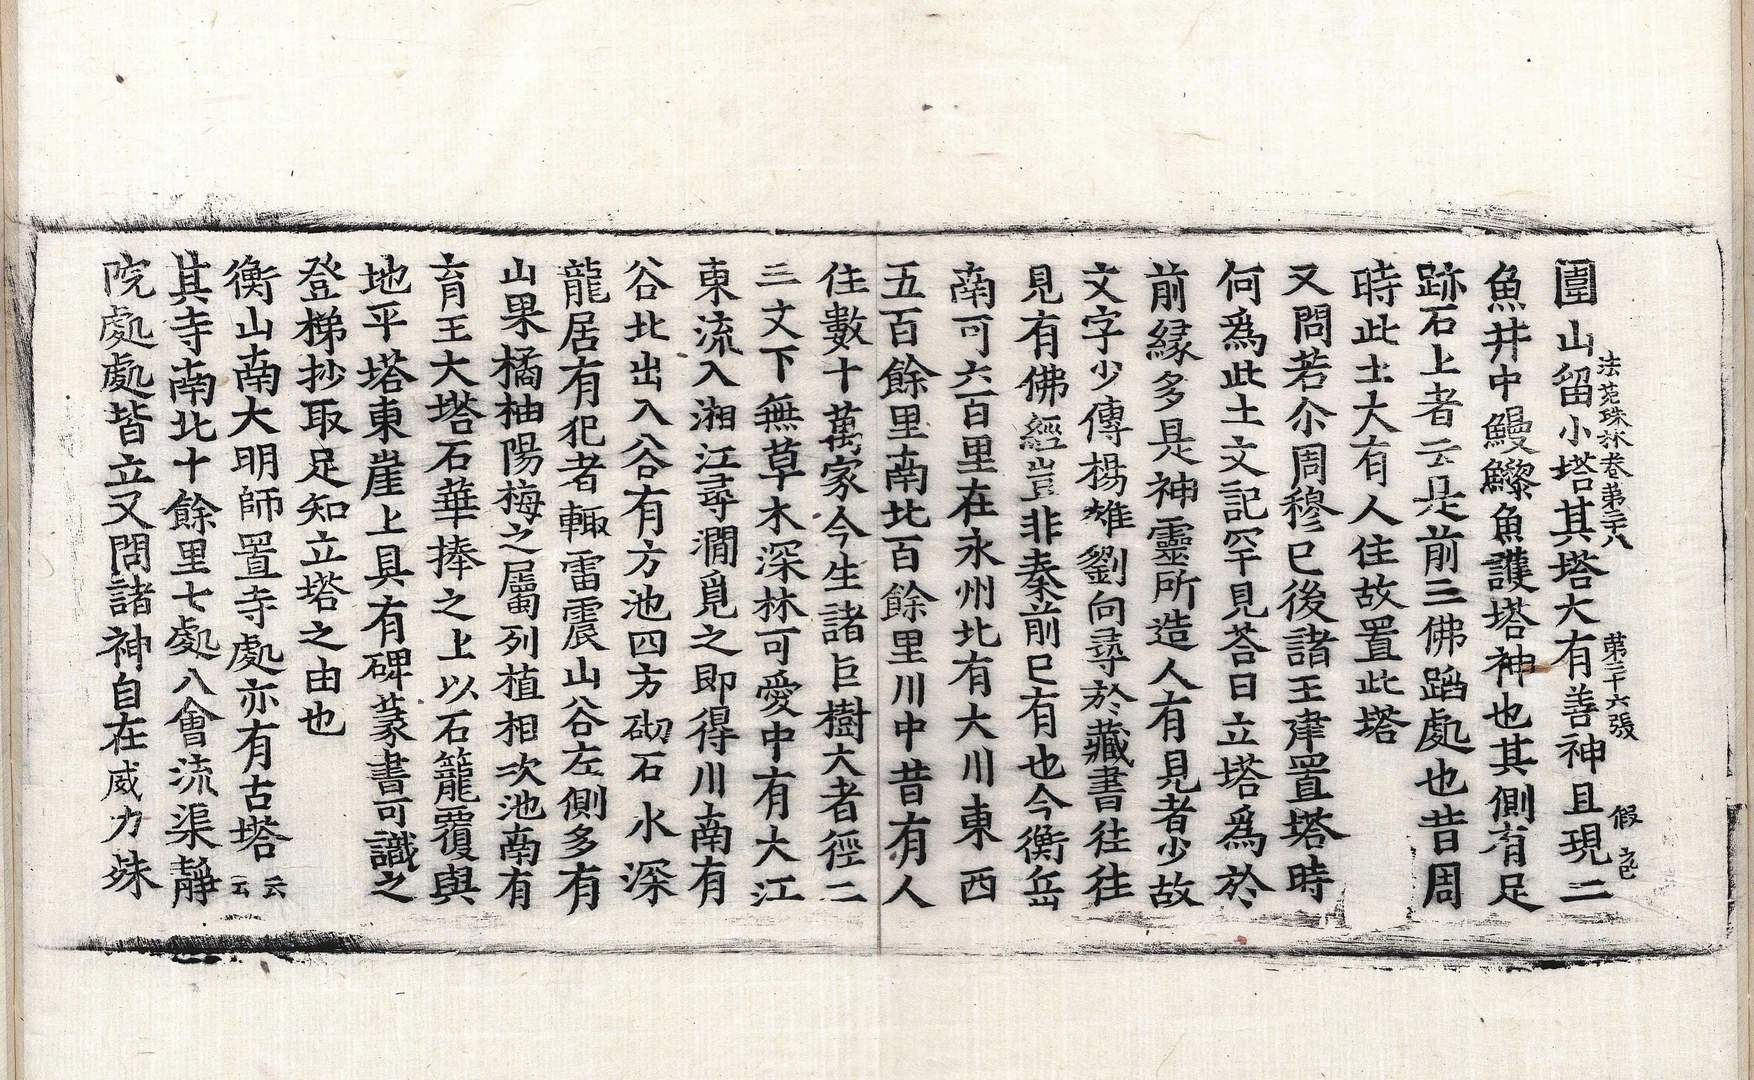 圓山留小塔其塔大有善神且現二
法苑珠林卷第三十八 第三十六張 假
魚井中鰻鱺魚護塔神也其側有足
跡石上者云是前三佛蹈處也昔周
時此土大有人住故置此塔
又問若尒周穆已後諸王建置塔時
何爲此土文記罕見荅曰立塔爲於
前縁多是神靈所造人有見者少故
文字少傳楊雄劉向尋於藏書往往
見有佛經豈非秦前已有也今衡岳
南可六百里在永州北有大川東西
五百餘里南北百餘里川中昔有人
住數十萬家今生諸巨樹大者徑二
三丈下無草木深林可愛中有大江
東流入湘江尋澗覓之即得川南有
谷北出入谷有方池四方砌石水深
龍居有犯者輙雷震山谷左側多有
山果橘柚陽梅之屬列植相次池南有
育王大塔石華捧之上以石籠覆與
地平塔東崖上具有碑篆書可識之
登梯抄取足知立塔之由也
衡山南大明師置寺處亦有古塔云云
其寺南北十餘里七處八會流渠靜
院處處皆立又問諸神自在威力殊